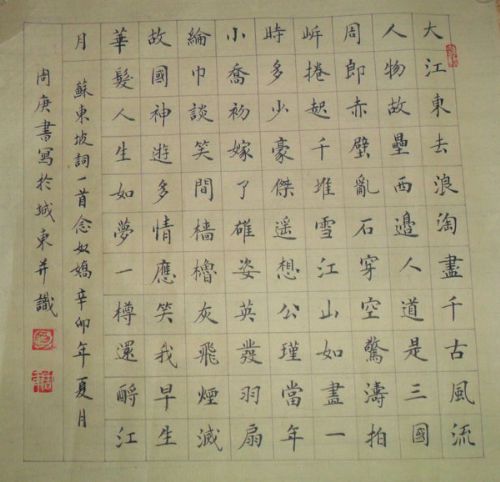 大江東去浪淘盡千古風流
人物故壘西邊人道是三國
周郎赤壁亂石穿空驚濤拍
岍捲起千堆雪江山如畫一
時多少豪傑遙想公瑾當年
小喬初嫁了雄姿英發羽扇
綸巾談笑間檣櫓灰飛煙滅
故國神遊多情應笑我早生
華髮人生如夢一樽還酹江
月 蘇東坡詞一首念奴嬌辛卯年夏月
周庚書寫於城東并識